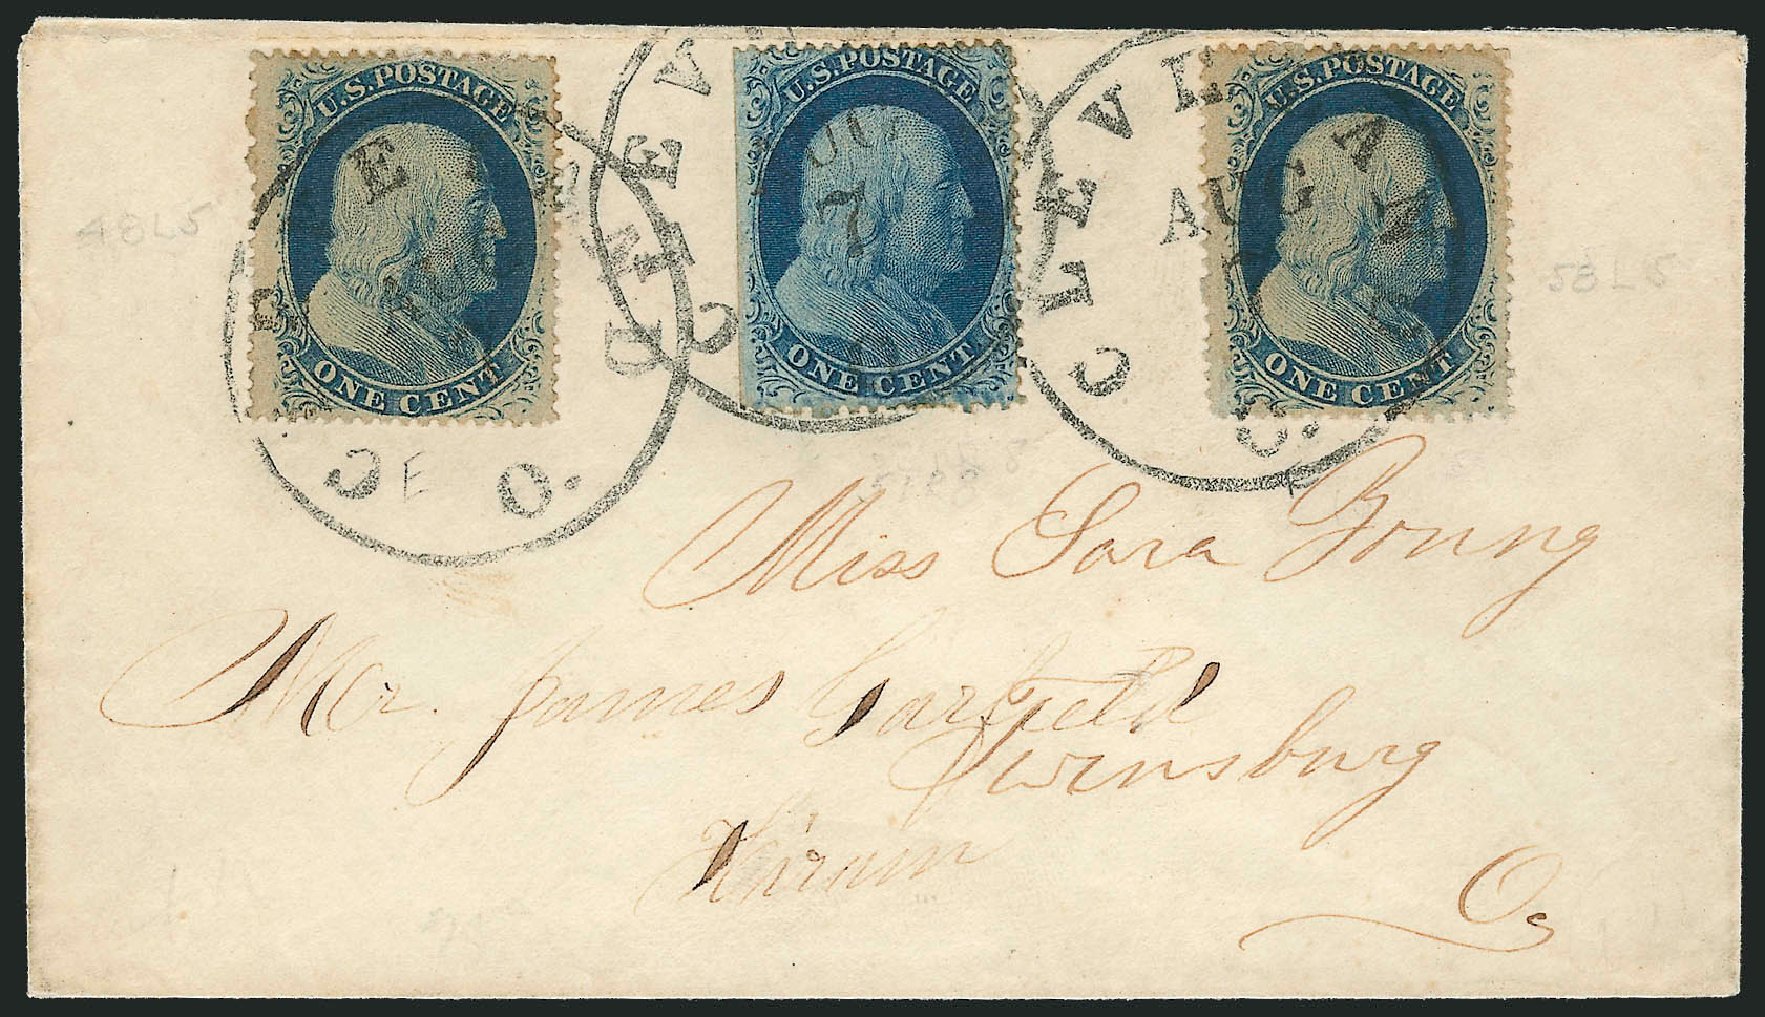 U.S. POSTAGE
ONE CENT
U.S. POSTAGE
ONE CENT
U.S. POSTAGE
ONE CENT
CLEVELAND O.
AUG
CLEVELAND O.
AUG
7
CLEVELAND O.
AUG
7
48L5
58L5
Miss Sara Young
Mr. James Garfield
Twinsburg
Hiram
O.